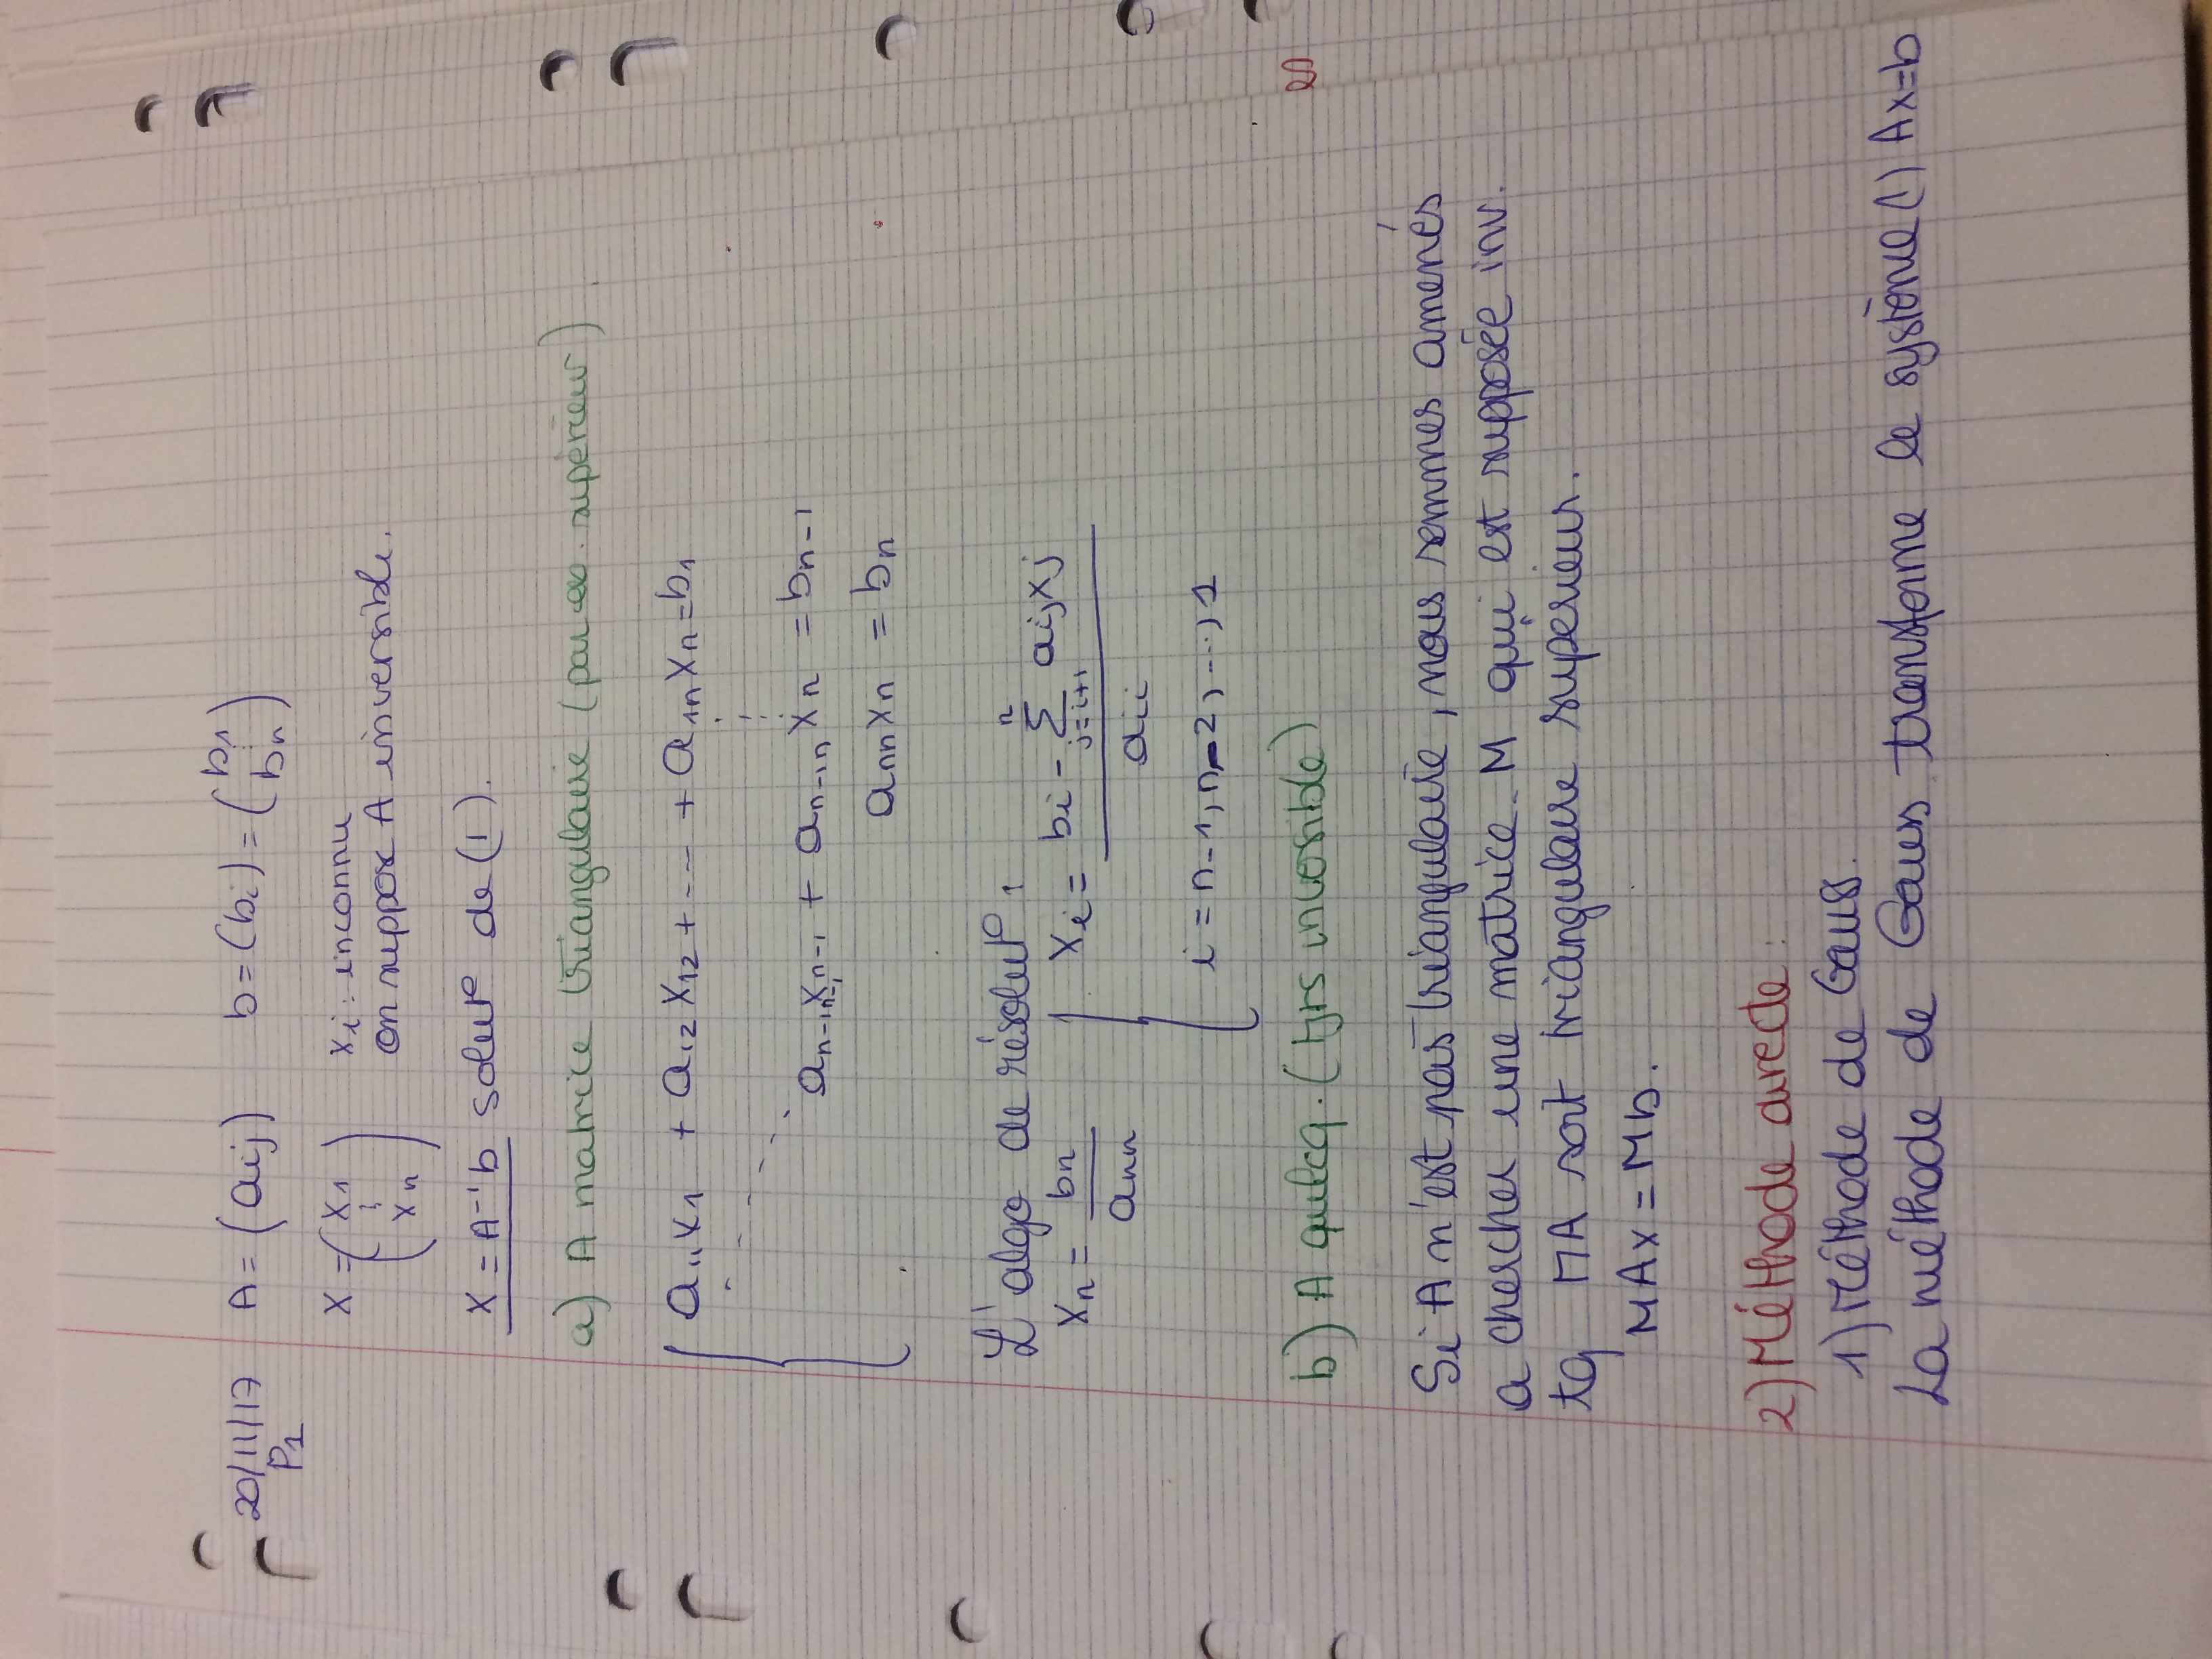 20/11/17 A = (aij) b = (bi) = (b1 ⋮ bn)
P1
X = (x1 ⋮ xn) xi : inconnu
on suppose A inversible.
X = A⁻¹b solut° de (1).
a) A matrice triangulaire (par ex. supérieur)
a11x1 + a12x12 + --- + a1nxn = b1
an-1n-1xn-1 + an-1nxn = bn-1
annxn = bn
L'algo de résolut° :
xn = bn/ann { xi = (bi - Σ_{j=i+1}^{n} aijxj)/aii
i = n-1, n-2, ..., 1
b) A qulcq. (tjrs inversible)
Si A n'est pas triangulaire, nous sommes amenés
a chercher une matrice M qui est supposée inv.
tq MA soit triangulaire supérieur.
MAx = Mb.
2) Méthode directe :
1) Méthode de Gauss.
La méthode de Gauss transforme le système (1) Ax=b